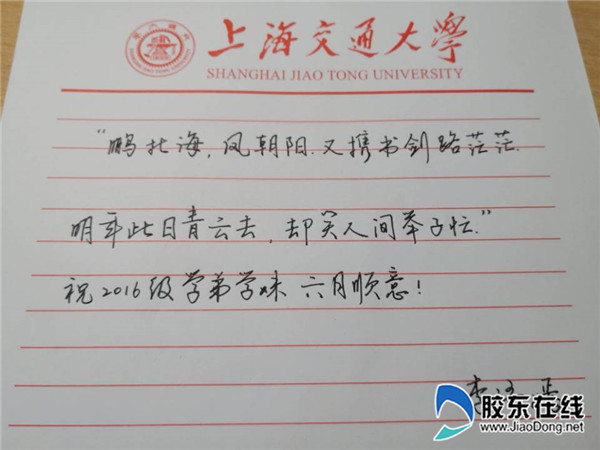 上海交通大学
SHANGHAI JIAO TONG UNIVERSITY
“鹏北海，凤朝阳.又携书剑路茫茫.
明年此日青云去，却笑人间举子忙.”
祝2016级学弟学妹 六月顺意！
李
胶东在线
www.JiaoDong.net